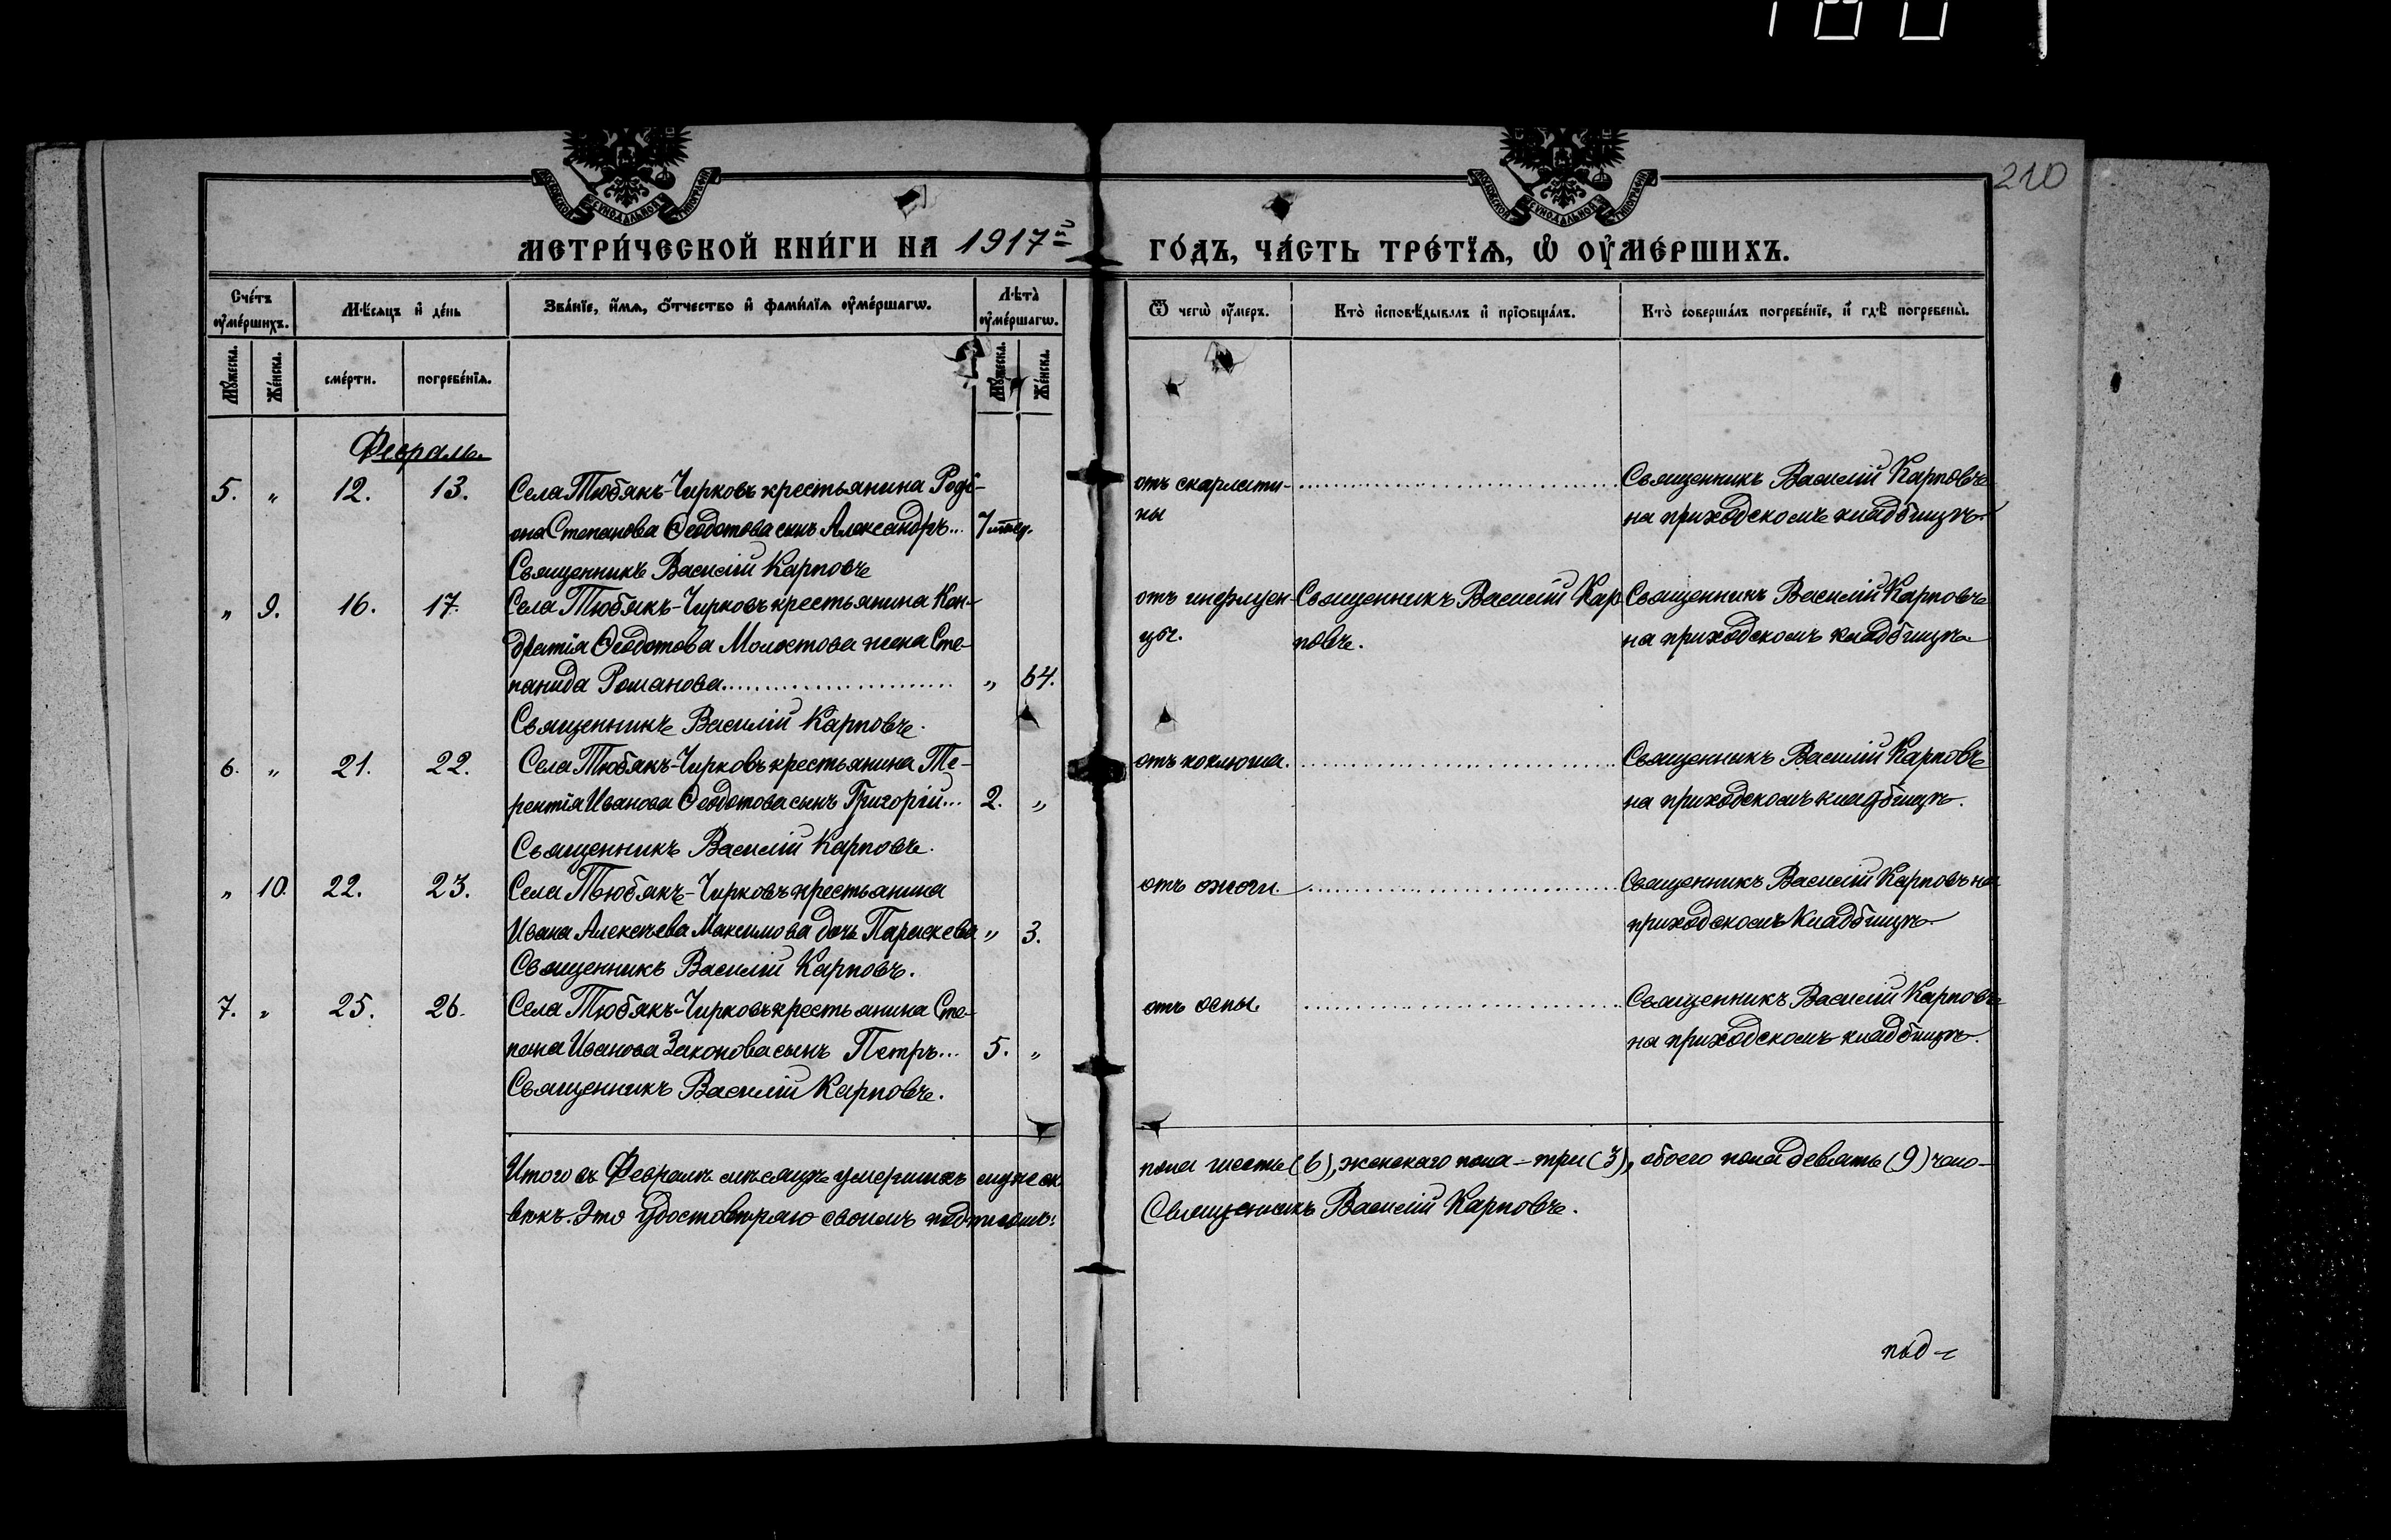 210
МЕТРИ́ЧЕСКОЙ КНИ́ГИ НА 1917й ГО́ДЪ, ЧА́СТЬ ТРЕ́ТЇѦ, Ѡ҆ ОУ҆МЕ́РШИХЪ.
Сче́тъ оу҆ме́ршихъ.
Мѣ́сяцъ и҆ де́нь
Зва́нїе, и҆́мѧ, ѻ҆́тчество и҆ фами́лїѧ оу҆ме́ршагѡ.
Лѣ́та оу҆ме́ршагѡ.
Ѿ чегѡ̀ оу҆́меръ.
Кто̀ и҆сповѣ́дывалъ и҆ прїѻбща́лъ.
Кто̀ соверша́лъ погребе́нїе, и҆ гдѣ̀ погребены̀.
Мꙋ́жеска.
Же́нска.
сме́рти.
погребе́нїѧ.
Мꙋ́жеска.
Же́нска.
Февраль.
5. „ 12. 13. Села Тюбякъ-Чирковъ крестьянина Роді-
она Степанова Ѳеодотова сынъ Александръ... 7
Священникъ Василій Карповъ
отъ скарлати-
ны
Священникъ Василій Карповъ
на приходскомъ кладбищѣ.
„ 9. 16. 17. Села Тюбякъ-Чирковъ крестьянина Кон-
дратія Ѳеодотова Молостова жена Сте-
панида Романова „ 64.
Священникъ Василій Карповъ.
отъ инфлуен-
цы.
Священникъ Василій Кар
повъ.
Священникъ Василій Карповъ
на приходскомъ кладбищѣ
6. „ 21. 22. Села Тюбякъ-Чирковъ крестьянина Те-
рентія Иванова Ѳеодотова сынъ Григорій... 2. „
Священникъ Василій Карповъ.
отъ коклюша.
Священникъ Василій Карповъ
на приходскомъ кладбищѣ.
„ 10. 22. 23. Села Тюбякъ-Чирковъ крестьянина
Ивана Алексѣева Максимова дочь Параскева „ 3.
Священникъ Василій Карповъ.
отъ ожоги.
Священникъ Василій Карповъ на
приходскомъ кладбищѣ
7. „ 25. 26. Села Тюбякъ-Чирковъ крестьянина Сте-
пана Иванова Законова сынъ Петръ... 5. „
Священникъ Василій Карповъ.
отъ оспы.
Священникъ Василій Карповъ
на приходскомъ кладбищѣ.
Итого въ Февралѣ мѣсяцѣ умершихъ мужеск. пола шесть (6), женскаго пола - три (3), обоего пола девять (9) чело-
вѣкъ. Это удостовѣряю своимъ подписомъ: Священникъ Василій Карповъ.
под-